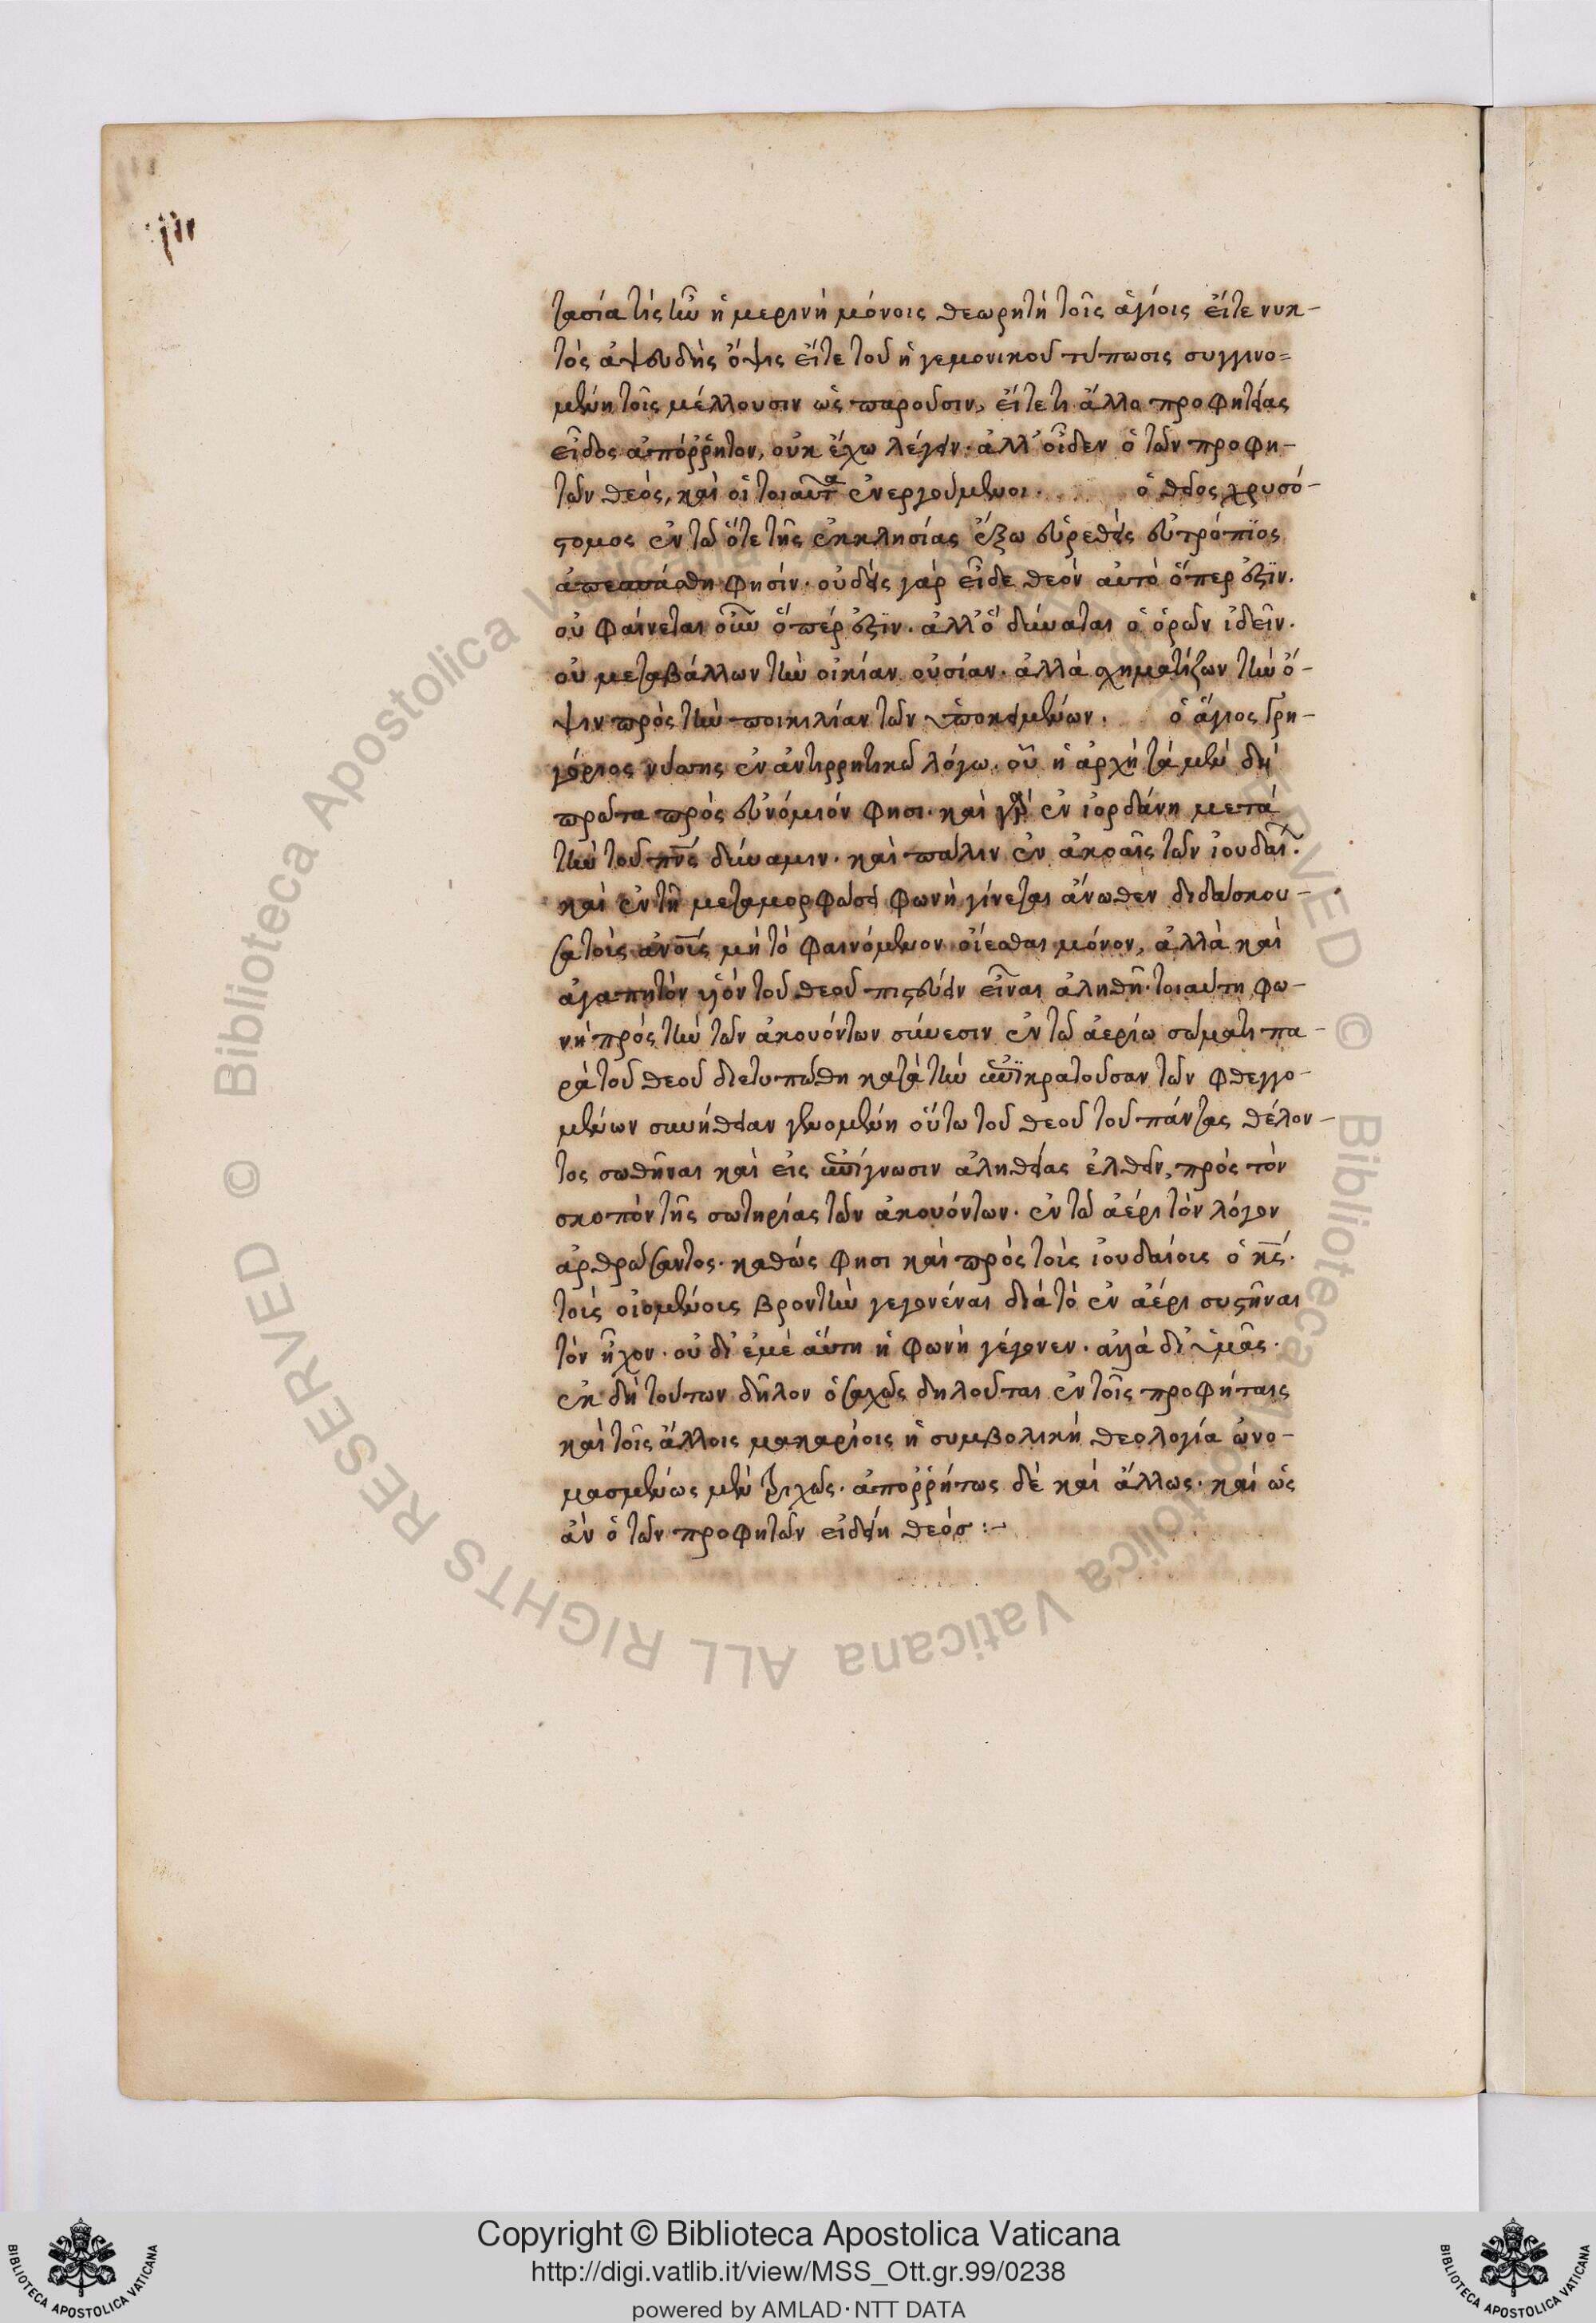 τασία τίς ἦν ἡμερινὴ μόνοις θεωρητὴ τοῖς ἁγίοις εἴτε νυκ-
τὸς ἀψευδὴς ὄψις εἴτε τοῦ ἡγεμονικοῦ τύπωσις συγγινο-
μένη τοῖς μέλλουσιν ὡς παροῦσιν, εἴτε τι ἄλλο προφητείας
εἶδος ἀπόρρητον, οὐκ ἔχω λέγειν· ἀλλ' οἶδεν ὁ τῶν προφη-
τῶν θεός, καὶ οἱ τοιαῦτα ἐνεργούμενοι. ὁ θεῖος χρυσό-
στομος ἐν τῶ ὅτε τῆς ἐκκλησίας ἔξω εὑρεθεὶς εὐτρόπιος
ἀπεσπάσθη φησίν· οὐδεὶς γὰρ εἶδε θεὸν αὐτὸ ὅπερ ἐστϊν.
οὐ φαίνεται οὖν ὅπέρ ἐστϊν. ἀλλ' ὃ δύναται ὁ ὁρῶν ἰδεῖν.
οὐ μεταβάλλων τὴν οἰκίαν οὐσίαν· ἀλλὰ σχηματίζων τὴν ὄ-
ψιν πρὸς τὴν ποικιλίαν τῶν ὑποκειμένων. ὁ ἅγιος Γρη-
γόριος νύσσης ἐν ἀντιρρητικῶ λόγω. οὗ ἡ ἀρχὴ τὰ μὲν δὴ
πρῶτα πρὸς εὐνόμιόν φησι. καὶ γὰρ ἐν ἰορδάνη μετὰ
τὴν τοῦ πνς δύναμιν. καὶ πάλιν ἐν ἀκοαῖς τῶν ἰουδαί.
καὶ ἐν τῆ μεταμορφώσει φωνὴ γίνεται ἄνωθεν διδάσκου-
σα τοὺς ἀνοὺς μὴ τὸ φαινόμενον οἴεσθαι μόνον, ἀλλὰ καὶ
ἀγαπητὸν υἱὸν τοῦ θεοῦ πιστεύειν εἶναι ἀληθῆ. τοιαύτη φω-
νὴ πρὸς τὴν τῶν ἀκουόντων σύνεσιν ἐν τῶ ἀερίω σώματι πα-
ρὰ τοῦ θεοῦ διετυπώθη κατὰ τὴν ἐπϊκρατοῦσαν τῶν φθεγγο-
μένων συνήθειαν γενομένη οὕτω τοῦ θεοῦ τοῦ πάντας θέλον-
τος σωθῆναι καὶ εἰς ἐπίγνωσιν ἀληθείας ἐλθεῖν, πρὸς τὸν
σκοπὸν τῆς σωτηρίας τῶν ἀκουόντων. ἐν τῶ ἀέρι τὸν λόγον
ἀρθρώσαντος. καθώς φησι καὶ πρὸς τοὺς ἰουδαίους ὁ κς.
τοὺς οἰομένους βροντὴν γεγονέναι διὰ τὸ ἐν ἀέρι συστῆναι
τὸν ἦχον. οὐ δι' ἐμὲ αὕτη ἡ φωνὴ γέγονεν. ἀλλὰ δι' ὑμᾶς.
ἐκ δὴ τούτων δῆλον ὁσαχῶς δηλοῦται ἐν τοῖς προφήταις
καὶ τοῖς ἄλλοις μακαρίοις ἡ συμβολικὴ θεολογία ὠνο-
μασμένως μὲν τριχῶς. ἀπορρήτως δὲ καὶ ἄλλως. καὶ ὡς
ἂν ὁ τῶν προφητῶν εἰδείη θεόσ :-
© Biblioteca Apostolica Vaticana ALL RIGHTS RESERVED
Copyright © Biblioteca Apostolica Vaticana
http://digi.vatlib.it/view/MSS_Ott.gr.99/0238
powered by AMLAD·NTT DATA
BIBLIOTECA APOSTOLICA VATICANA
BIBLIOTECA APOSTOLICA VATICANA